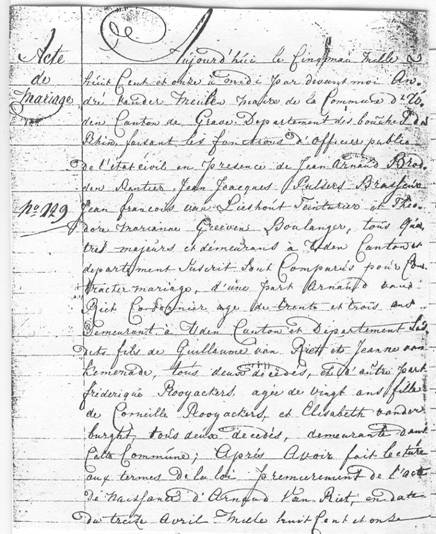 Acte
de
Mariage
No. 129
Aujourd'huy le cinq mai Mille
huit Cent et onze à midi par devant moi An
dré vander Meulen Maire de la Commune d'U
den Canton de Grave Departement des bouches du
Rhin, faisant les fonctions d'officier public
de l'etat civil en presence de Jean Arnaud
den Rentier Jean Joacques Brasseur
Jean francois van Lieshout Teinturier et Théo
dore Marianus Greeven Boulanger, tous qua
tres majeurs et demeurans à Uden Canton et
departement Suscrit Sont Comparus pour Con
tracter mariage, d'une part Arnaud van
Riet Cordonnier age de trente et trois ans
Demeurant à Uden Canton et Departement Sus
dits fils de Guillaume van Riet et Jeanne van
homenade, tous deux decédés, et d'autre part
fréderique Rooyackers agée de vingt ans fille
de Corneille Rooyackers, et Elisabeth vander
burght, tous deux decedés, demeurante dans
Cette Commune; Après Avoir fait lecture
aux termes de la loi premierement de l'acte
de naissance d'Arnaud Van Riet, en date
du treize Avril Mille huit Cent et onse